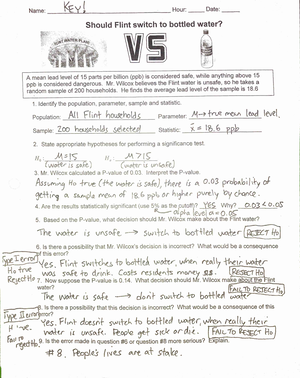 Name: KEY! Hour: Date:
Should Flint switch to bottled water?
VS
A mean lead level of 15 parts per billion (ppb) is considered safe, while anything above 15
ppb is considered dangerous. Mr. Wilcox believes the Flint water is unsafe, so he takes a
random sample of 200 households. He finds the average lead level of the sample is 18.6
1. Identify the population, parameter, sample and statistic.
Population: All Flint households Parameter: μ→ true mean lead level
Sample: 200 households selected Statistic: x̄ = 18.6 ppb
2. State appropriate hypotheses for performing a significance test.
H₀: μ=15 H₁: μ>15
(water is safe) (water is unsafe)
3. Mr. Wilcox calculated a P-value of 0.03. Interpret the P-value.
Assuming Ho true (the water is safe), there is a 0.03 probability of
getting a sample mean of 18.6 ppb or higher purely by chance.
4. Are the results statistically significant (use 5% as the cutoff)? YES Why? 0.03<0.05
alpha level α=0.05
5. Based on the P-value, what decision should Mr. Wilcox make about the Flint water?
The water is unsafe → switch to bottled water REJECT Ho
6. Is there a possibility that Mr. Wilcox's decision is incorrect? What would be a consequence
of this error?
Type I error Ho true Reject Ho
Yes. Flint switches to bottled water, when really their water
was safe to drink. Costs residents money $$. REJECT Ho
7. Now suppose the P-value is 0.14. What decision should Mr. Wilcox make about the Flint
water? FAIL TO REJECT Ho
The water is safe → don't switch to bottled water
8. Is there a possibility that this decision is incorrect? What would be a consequence of this
error?
Type II error
Yes. Flint doesn't switch to bottled water, when really their
water is unsafe. People get sick or die. FAIL TO REJECT Ho
9. Is the error made in question #6 or question #8 more serious? Explain.
#8. People's lives are at stake.